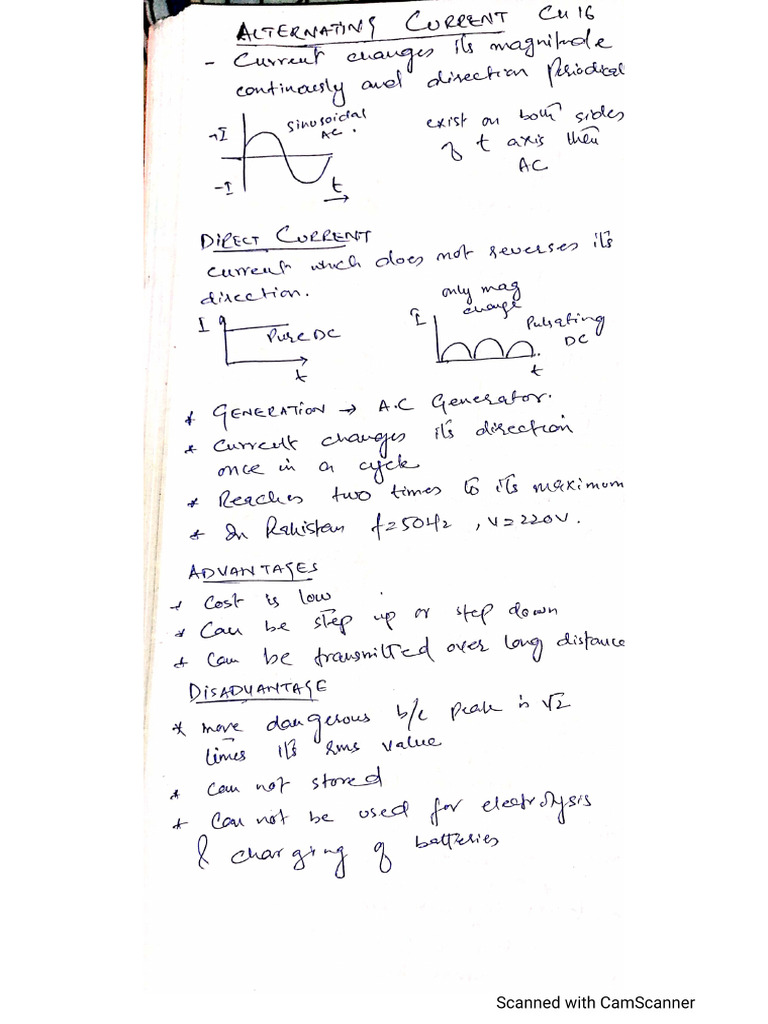 ALTERNATING CURRENT CH 16
- Current changes its magnitude
continously and direction Periodical
+I
sinusoidal
AC.
-I
t
exist on both sides
of t axis then
AC
DIRECT CURRENT
current which does not reverses its
direction.
I
Pure DC
t
only mag
change
I
Pulsating
DC
t
* GENERATION → A.C Generator.
* Current changes its direction
once in a cycle
* Reaches two times to its maximum
* In Pakistan f=50Hz, V=220V.
ADVANTAGES
* Cost is low
* Can be step up or step down
* Can be transmitted over long distance
DISADVANTAGE
* more dangerous b/c peak is √2
times its rms value
* can not stored
* Can not be used for electrolysis
& charging of batteries
Scanned with CamScanner